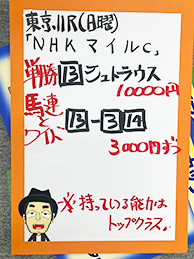 東京11R(日曜)
「NHKマイルC」
単勝13シュトラウス
10000円
馬連とワイド
13-3 14
3000円ずつ
☆持っている能力は
トップクラス!